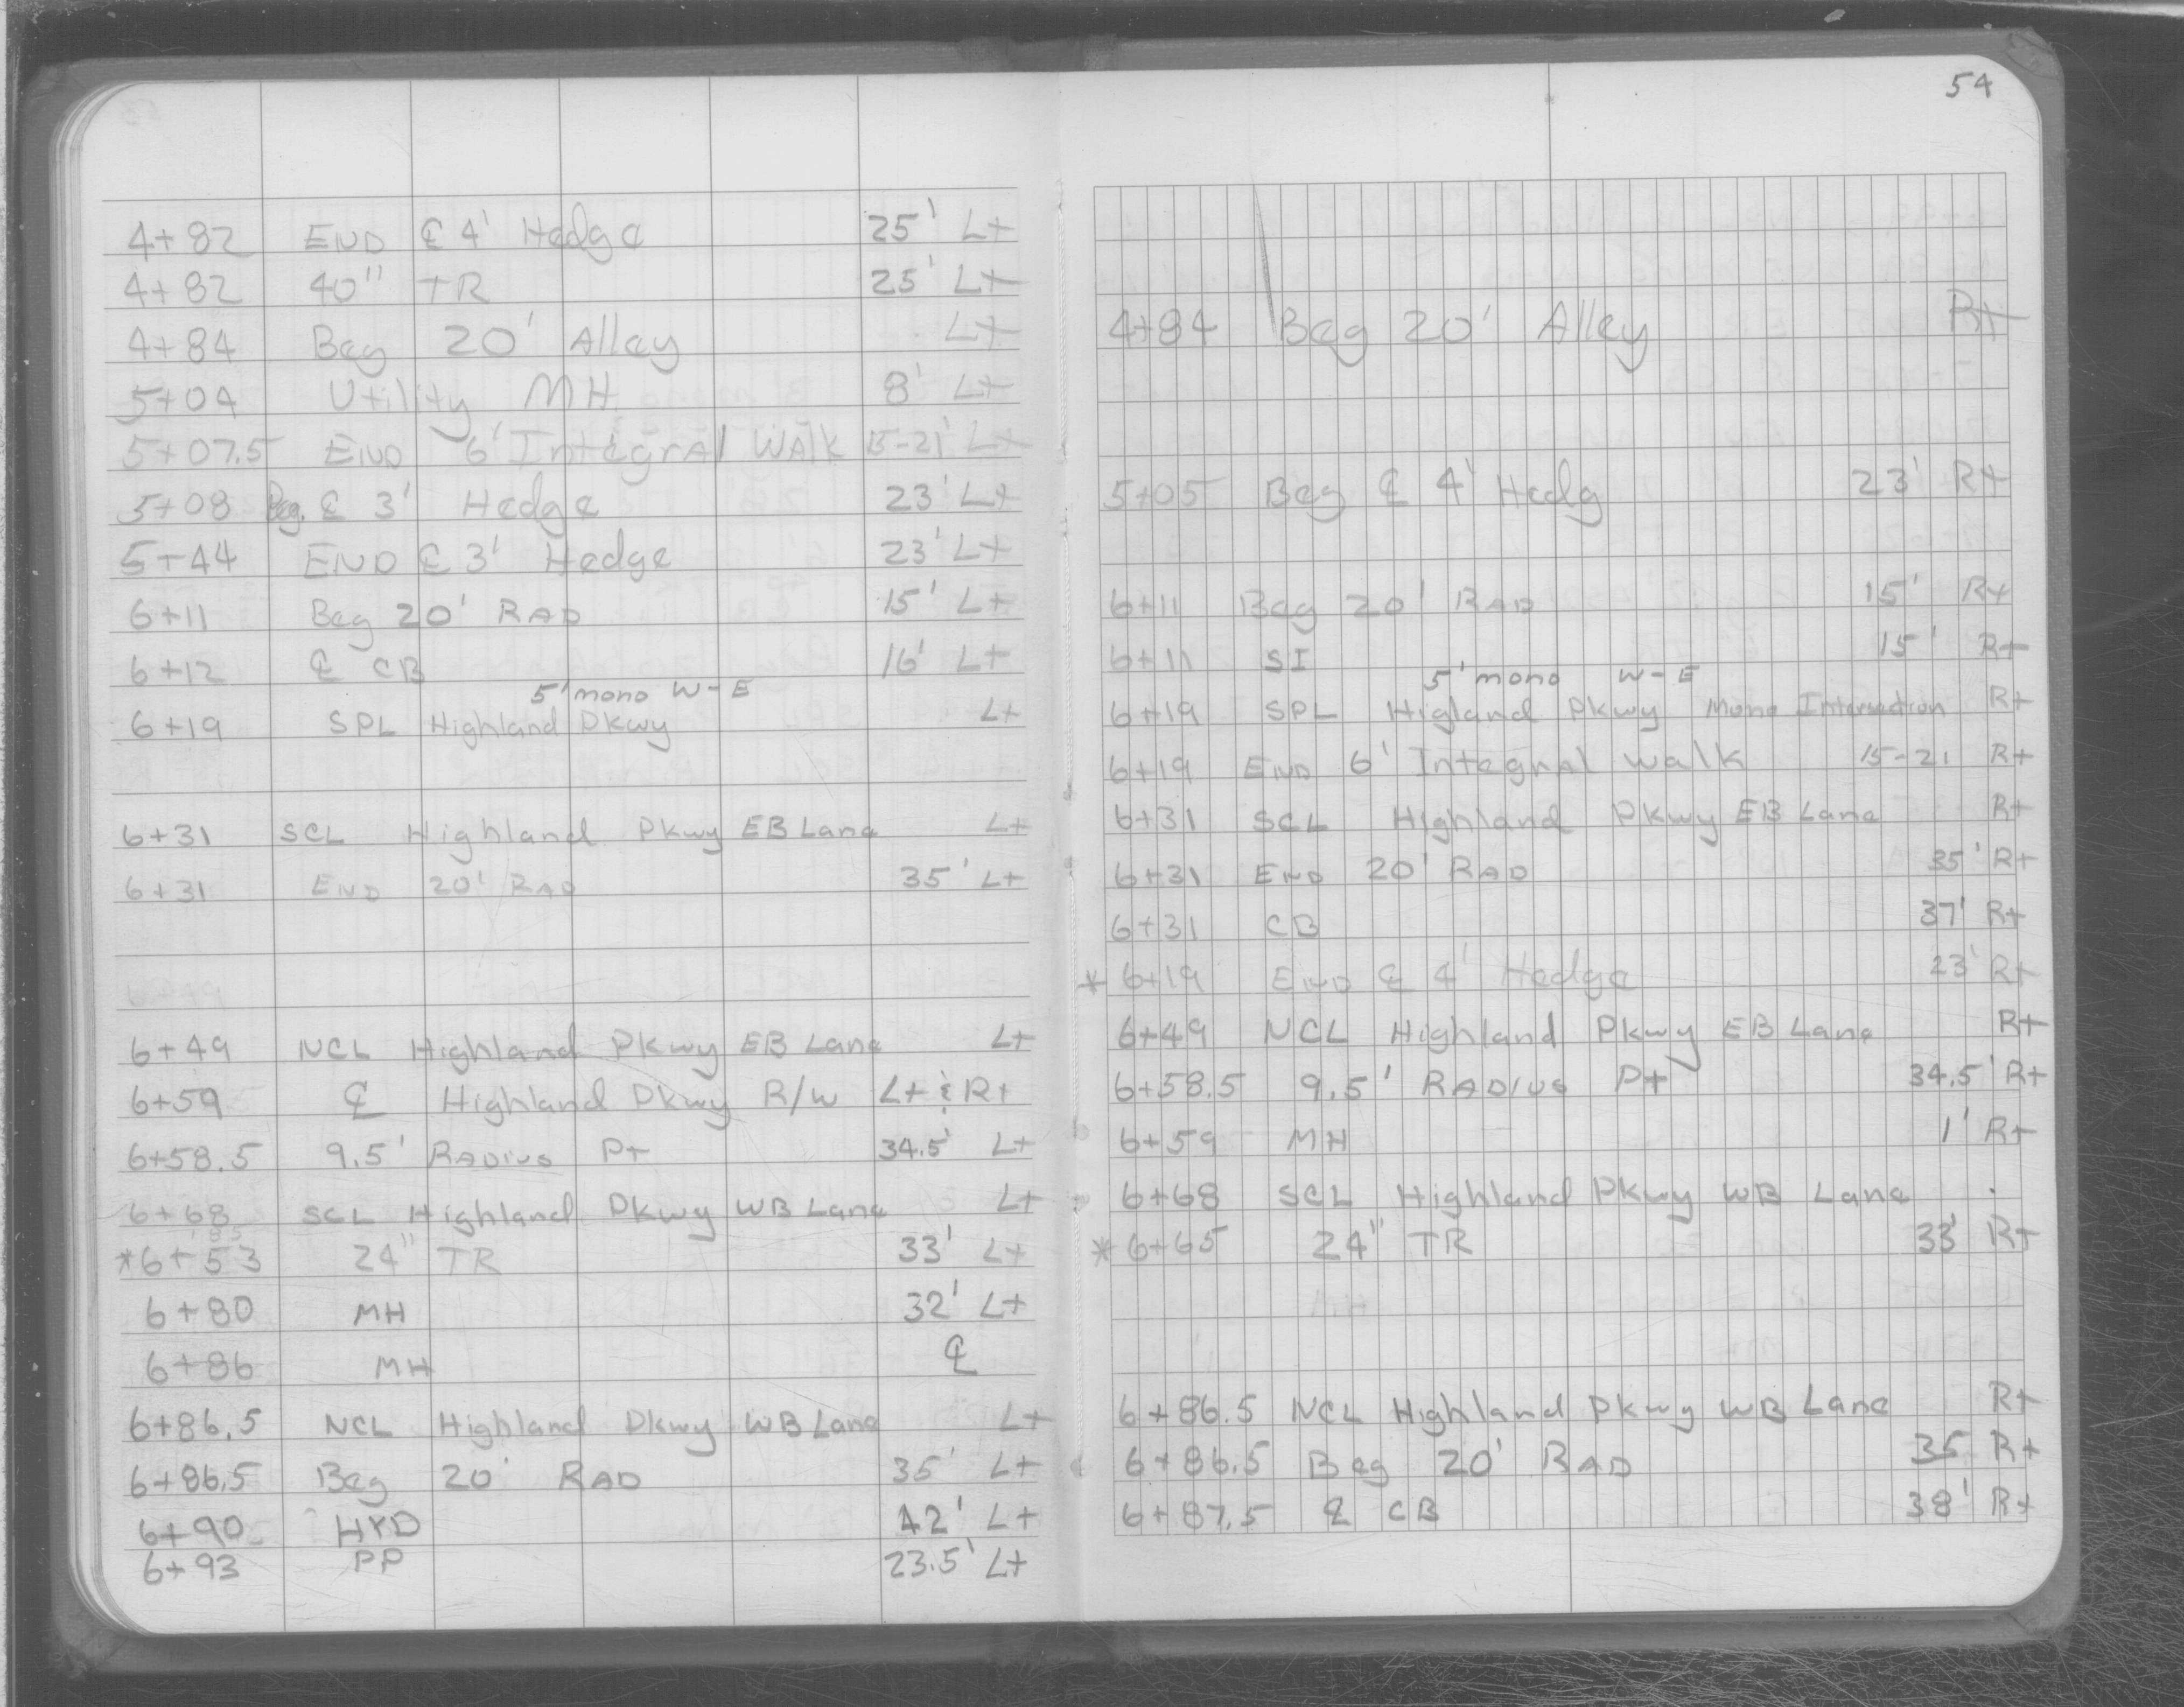 54
4+82 END ℄ 4' Hedge 25' Lt
4+82 40" TR 25' Lt
4+84 Beg 20' Alley Lt
5+04 Utility MH 8' Lt
5+07.5 END 6' Integral Walk 15-21' Lt
5+08 Beg. ℄ 3' Hedge 23' Lt
5+44 END ℄ 3' Hedge 23' Lt
6+11 Beg 20' RAD 15' Lt
6+12 ℄ CB 16' Lt
5' mono W-E
6+19 SPL Highland Pkwy Lt
6+31 SCL Highland Pkwy EB Lane Lt
6+31 END 20' RAD 35' Lt
6+49 NCL Highland Pkwy EB Lane Lt
6+59 ℄ Highland Pkwy R/W Lt & Rt
6+58.5 9.5' Radius Pt 34.5' Lt
6+68 SCL Highland Pkwy WB Lane Lt
*6+53 24" TR 33' Lt
6+80 MH 32' Lt
6+86 MH ℄
6+86.5 NCL Highland Pkwy WB Lane Lt
6+86.5 Beg 20' RAD 35' Lt
6+90 HYD 42' Lt
6+93 PP 23.5' Lt
4+84 Beg 20' Alley Rt
5+05 Beg ℄ 4' Hedg 23' Rt
6+11 Beg 20' RAD 15' Rt
6+11 SI 15' Rt
5' mono W-E
6+19 SPL Higland Pkwy Mono Intersection Rt
6+19 END 6' Integral Walk 15-21 Rt
6+31 SCL Highland Pkwy EB Lane Rt
6+31 END 20' RAD 35' Rt
6+31 CB 37' Rt
* 6+19 END ℄ 4' Hedge 23' Rt
6+49 NCL Highland Pkwy EB Lane Rt
6+58.5 9.5' Radius Pt 34.5' Rt
6+59 MH 1' Rt
6+68 SCL Highland Pkwy WB Lane
* 6+65 24" TR 33' Rt
6+86.5 NCL Highland Pkwy WB Lane Rt
6+86.5 Beg 20' RAD 35 Rt
6+87.5 ℄ CB 38' Rt